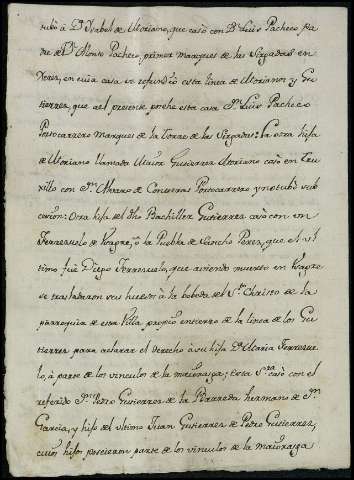 tubó à Dª Ysabel de Moriano, que casó con Dⁿ Luis Pacheco Pa
dre de Dⁿ Alonso Pacheco, primer marques de las Sirgadas en
Xerez, en cuia casa se refundio esta linea de Morianos y Gu
tierrez, que al presente poehe esta casa Dⁿ Luis Pacheco
Portocarrero Marques de la Torre de las Sirgadas: La otra hija
de Moriano llamada Maior Gutierrez Moriano casó en Tru
xillo con Dⁿ Alvaro de Contreras Portocarrero y no tubo sub
cesion: Otra hija del dho Bachiller Gutierrez casó con un
Ferreruelo de Usagre, ò la Puebla de Sancho Perez, que el ul
timo fue Diego Ferreruelo, que aviendo muerto en Usagre
se trasladaron sus huesos à la bobeda del Sᵗᵒ Christo de la
parroquia de esta Villa, propio entierro de la linea de los Gu
tierrez para aclarar el derecho à su hija Dª Maria Ferrerue
lo, à parte de los vinculos de la maiorazga; Esta Sʳᵃ casó con el
referido Dⁿ Pedro Gutierrez de la Barreda hermano de Dⁿ
Garcia, y hijo del ultimo Juan Gutierrez de Pedro Gutierrez,
cuios hijos poseieron parte de los vinculos de la maiorazga